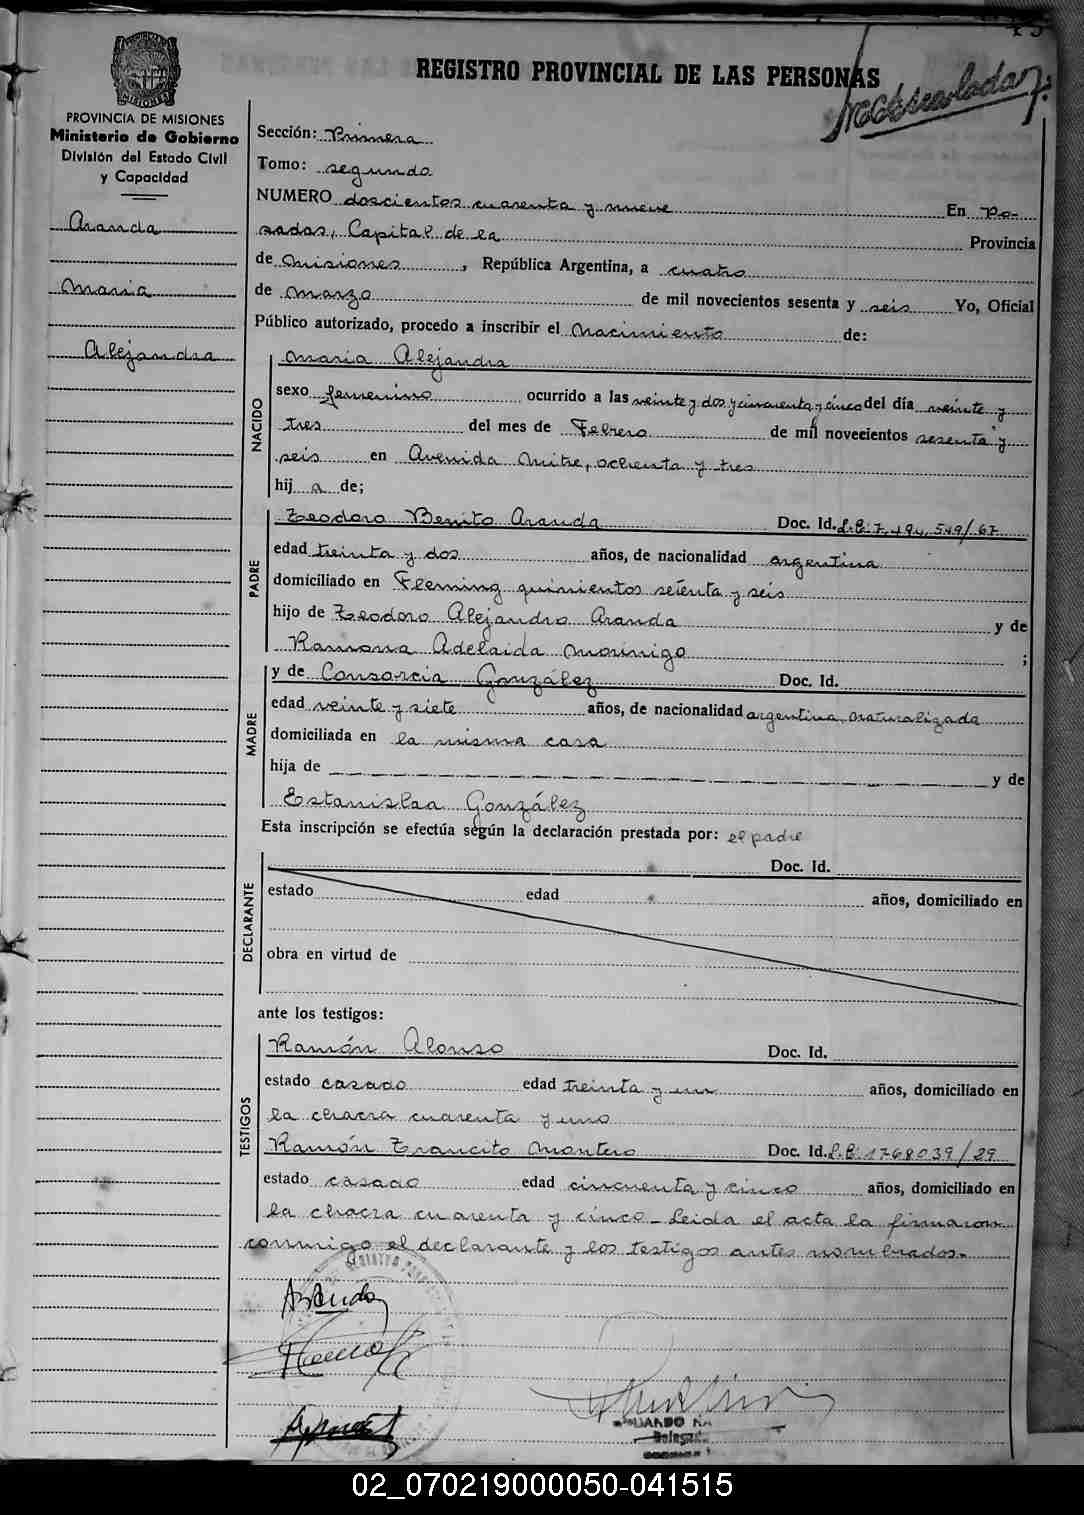 REGISTRO PROVINCIAL DE LAS PERSONAS
MISIONES
PROVINCIA DE MISIONES
Ministerio de Gobierno
División del Estado Civil
y Capacidad
Aranda
Maria
Alejandra
Sección: Primera
Tomo: segundo
NUMERO doscientos cuarenta y nueve En Po-
sadas, Capital de la Provincia
de Misiones, República Argentina, a cuatro
de Marzo de mil novecientos sesenta y seis Yo, Oficial
Público autorizado, procedo a inscribir el Nacimiento de:
NACIDO
Maria Alejandra
sexo femenino ocurrido a las veinte y dos y cincuenta y cinco del día veinte y
tres del mes de Febrero de mil novecientos sesenta y
seis en Avenida Mitre, ochenta y tres
hij a de;
PADRE
Teodoro Benito Aranda Doc. Id. L.E. 7.494.549/67
edad treinta y dos años, de nacionalidad argentina
domiciliado en Fleming quinientos setenta y seis
hijo de Teodoro Alejandro Aranda y de
Ramona Adelaida Morinigo ;
MADRE
y de Consorcia González Doc. Id.
edad veinte y siete años, de nacionalidad argentina naturalizada
domiciliada en la misma casa
hija de y de
Estanislaa González
Esta inscripción se efectúa según la declaración prestada por: el padre
DECLARANTE
Doc. Id.
estado edad años, domiciliado en
obra en virtud de
ante los testigos:
TESTIGOS
Ramón Alonso Doc. Id.
estado casado edad treinta y un años, domiciliado en
la chacra cuarenta y uno
Ramón Trancito Montero Doc. Id. L.E. 1768039/29
estado casado edad cincuenta y cinco años, domiciliado en
la chacra cuarenta y cinco - Leida el acta la firmaron
conmigo el declarante y los testigos antes nombrados.
Aranda
02_070219000050-041515